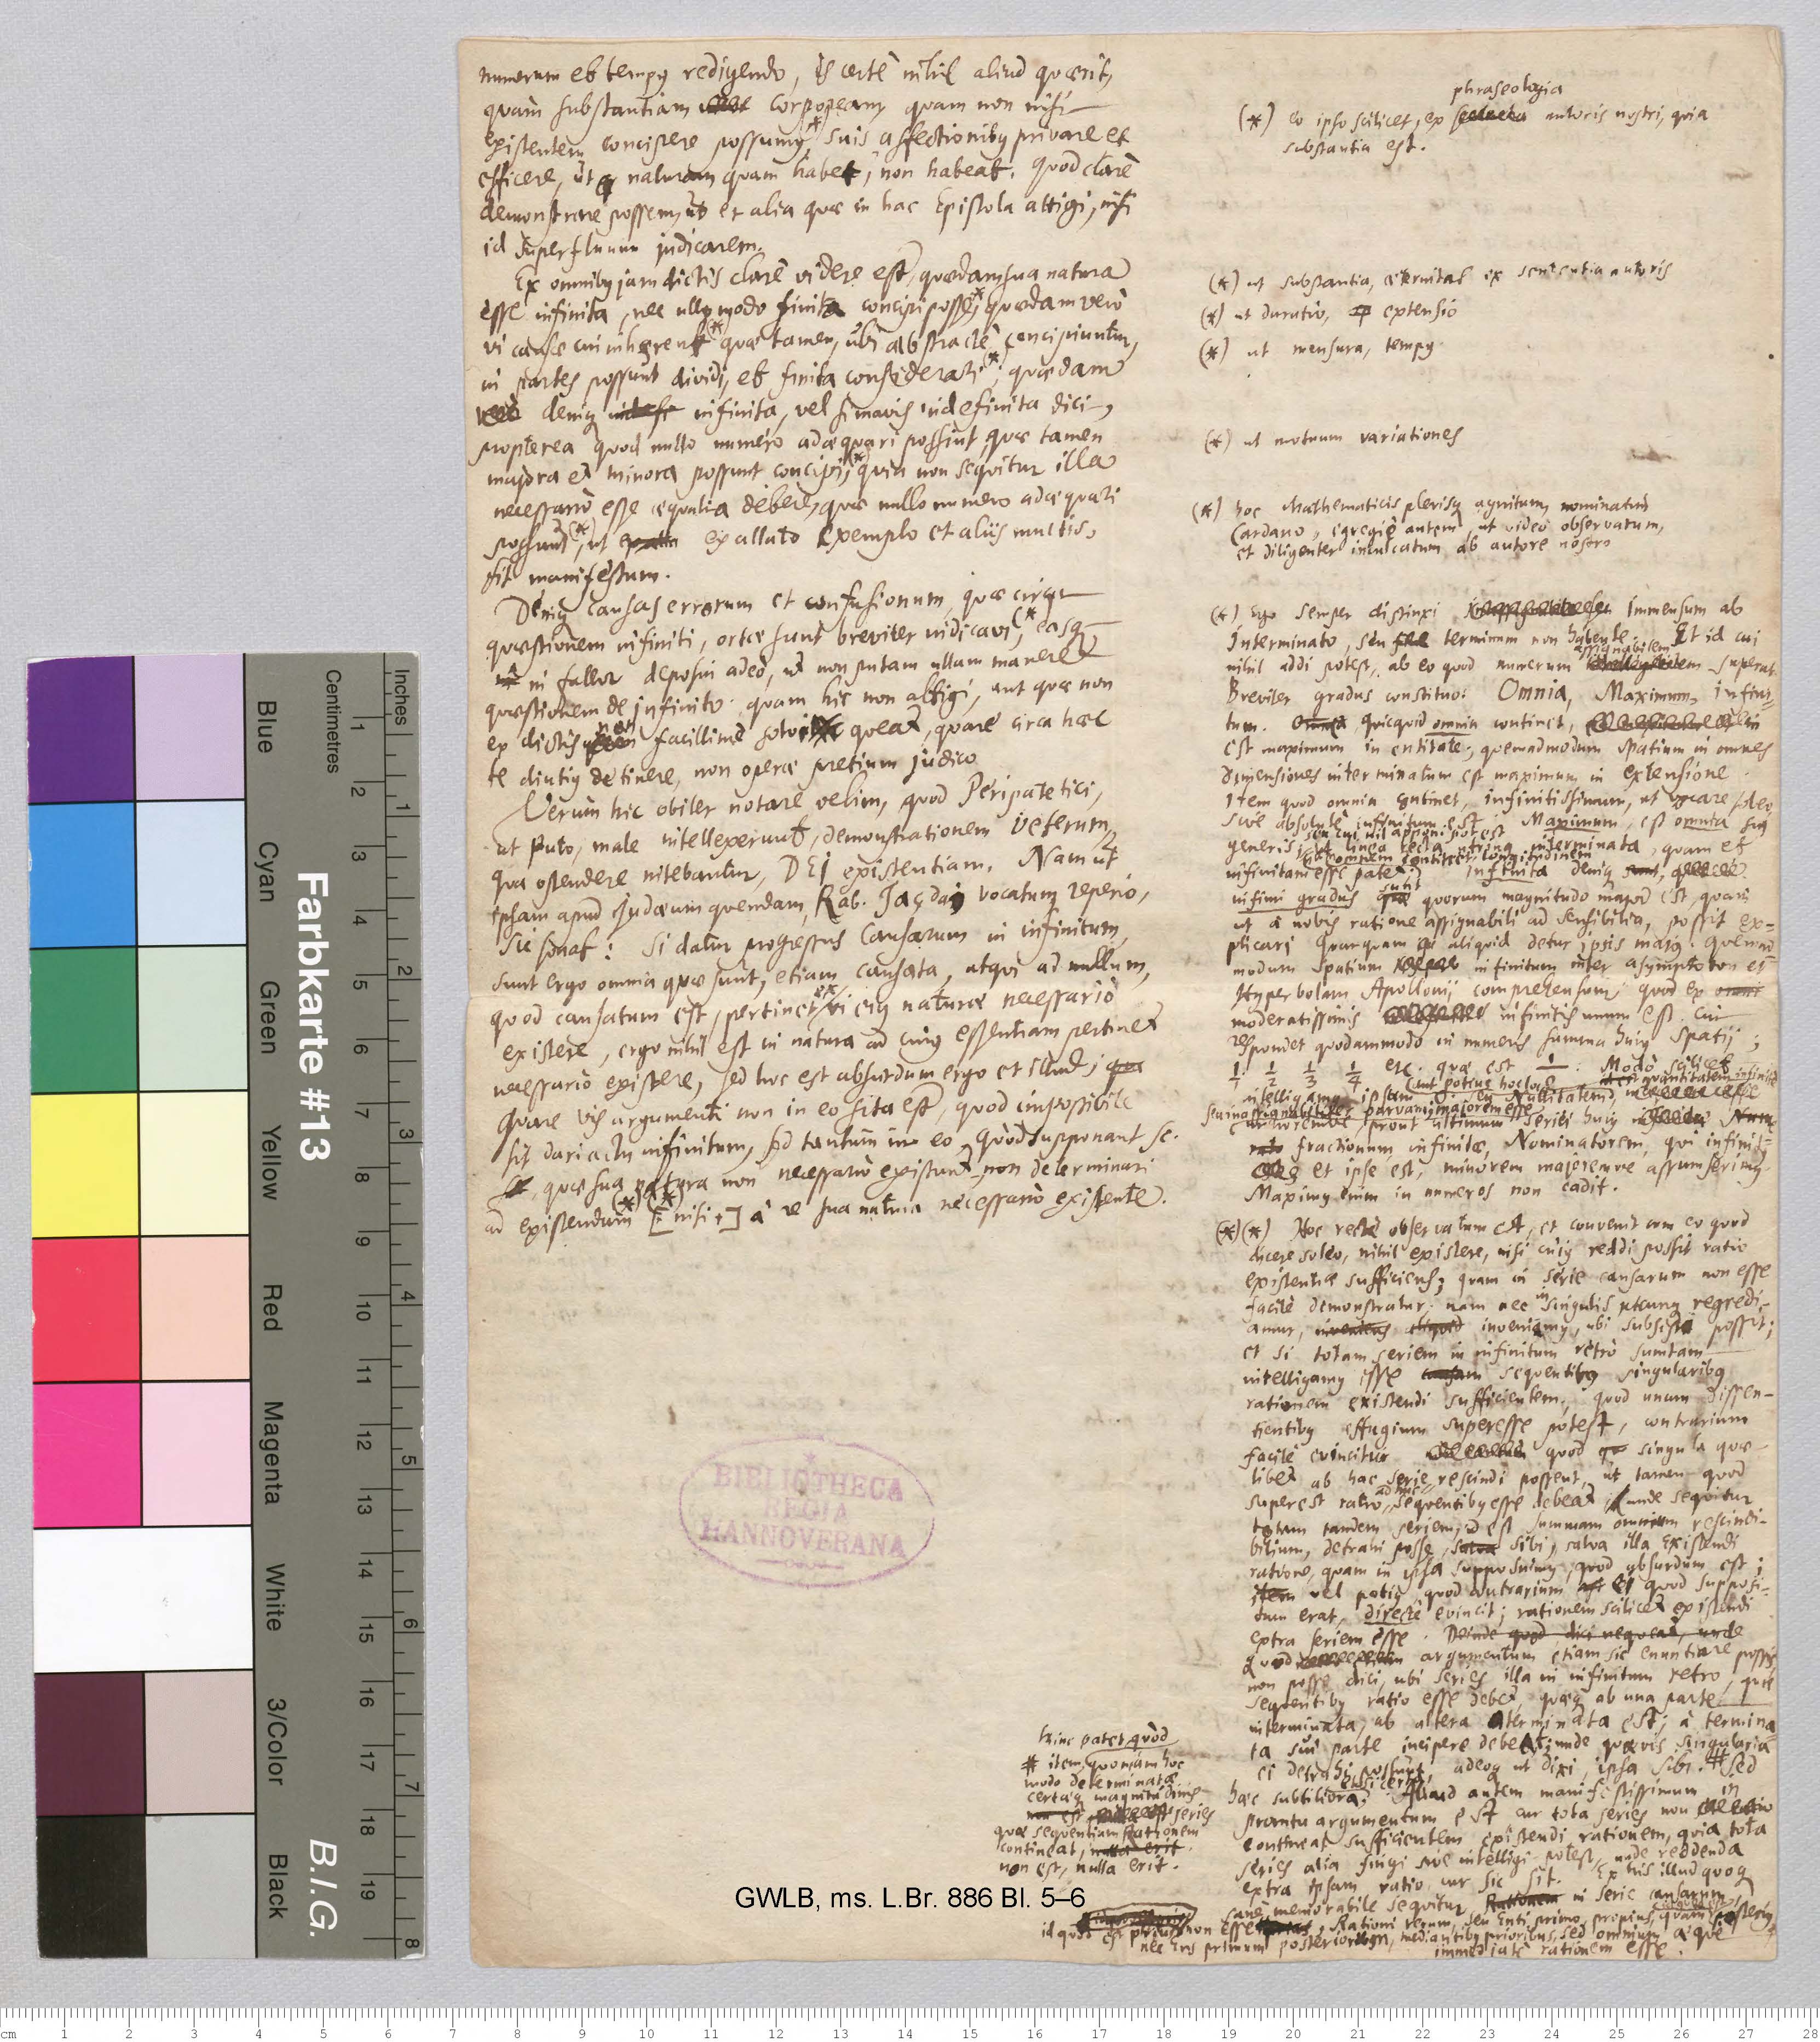 numerum et tempus redigendo, is certè nihil aliud quaerit,
quàm substantiam corpoream, quam non nisi
existentem concipere possumus,* suis affectionibus privare et
efficere, ut naturam quam habet, non habeat. Quod clarè
demonstrare possem, ut et alia quae in hac Epistola attigi, nisi
id superfluum judicarem.
Ex omnibus jam dictis clarè videre est, quaedam sua natura
esse infinita, nec ullo modo finita concipi posse,* quaedam verò
vi causae cui inhaerent(*) quae tamen, ubi abstractè concipiuntur,
in partes possunt dividi, et finita considerari(*); quaedam
denique infinita, vel si mavis indefinita dici,
propterea quod nullo numero adaequari possint, quae tamen
majora et minora possunt concipi,(*) quia non sequitur illa
necessariò esse aequalia debere, quae nullo numero adaequari
possunt(*), ut ex allato Exemplo et aliis multis,
sit manifestum.
Denique Causas errorum et confusionum, quae circa
quaestionem infiniti, ortae sunt breviter indicavi,(* easque
ni fallor deposui adeò, ut non putam ullam manere
quaestionem de infinito quam hic non attigi, aut quae non
ex dictis non facillimè solvi queat, quare circa haec
te diutius detinere, non operae pretium judico
Verùm hic obiter notare velim, quod Peripatetici,
ut puto, male intellexerunt, demonstrationem Veterum,
qua ostendere nitebantur, DEI existentiam. Nam ut
ipsam apud Judaeum quendam, Rab. Jaçdaj vocatum reperio,
sic sonat: Si datur progressus Causarum in infinitum,
sunt ergo omnia quae sunt, etiam causata, atqui ad nullum,
quod causatum est, pertinet vi ejus naturae necessariò
existere, ergo nihil est in natura ad cujus essentiam pertinet
necessariò existere, sed hoc est absurdum ergo et illud;
Quare vis argumenti non in eo sita est, quod impossibile
sit dari actu infinitum, sed tantum in eo quòd supponant sc.
quae sua natura non necessariò existunt non determinari
ad existendum(*)(*) [nisi +] à re sua natura necessariò existente.
phraseologia
(*) eo ipso scilicet, ex autoris nostri, quia
substantia est.
(*) ut substantia, aeternitas ex sententia autoris
(*) ut duratio, extensio
(*) ut mensura, tempus
(*) ut motuum variationes
(*) hoc Mathematicis plerisque agnitum, nominatim
Cardano, egregiè autem ut video observatum,
et diligenter inculcatum ab autore nostro
(*) Ego semper distinxi Immensum ab
Interminato, seu terminum non habente. Et id cui
nihil addi potest, ab eo quod numerum assignabilem superat.
Breviter gradus constituo: Omnia, Maximum, Infini-
tum. quicquid omnia continet,
est maximum in entitate; quemadmodum spatium in omnes
dimensiones interminatum est maximum in extensione.
Item quod omnia continet, infinitissimum, ut vocare soleo,
sive absolutè infinitum est. Maximum, est omnia sui
generis, seu cui nil apponi potest
ut linea recta utrinque interminata, quam et
infinitam esse patet, nam omnem continet longitudinem. Infinita denique
infimi gradus sunt quorum magnitudo major est, quàm
ut à nobis ratione assignabili ad sensibilia, possit ex=
plicari Quanquam aliquid detur ipsis majus. Quemad-
modum Spatium infinitum inter asymptoton et
Hyperbolam Apollonii comprehensum quod ex
moderatissimis infinitis unum est. Cui
respondet quodammodo in numeris summa hujus spatii;
1/1 1/2 1/3 1/4 etc. quae est 1/0. Modò scilicet
intelligamus ipsam 0. seu Nullitatem,
(aut potius hoc loco quantitatem infinitè
seu inassignabiliter parvam) majorem esse
minoremve, prout ultimum seriei hujus
fractionum infinitae, Nominatorem, qui infini-
tus et ipse est, minorem majoremve assumserimus.
Maximum enim in numeros non cadit.
(*)(*) Hoc rectè observatum est, et convenit cum eo quod
dicere soleo, nihil existere, nisi cujus reddi possit ratio
existentiae sufficiens; quam in serie causarum non esse
facilè demonstratur; nam nec in singulis utcunque regredi-
amur, inveniemus, ubi subsisti possit;
et si totam seriem in infinitum retrò sumtam
intelligamus esse sequentibus singularibus
rationem existendi sufficientem, quod unum dissen-
tientibus effugium superesse potest, contrarium
facilè evincitur quod singula quae-
libet ab hac serie rescindi possent, ut tamen quod
superest ratio adhuc sequentibus esse debeat, unde sequitur
totam tandem seriem, id est summam omnium rescindi-
bilium, detrahi posse sibi, salva illa Existendi
ratione, quam in ipsa supposuimus, quod absurdum est;
vel potius, quod contrarium ei quod supposi-
tum erat, directè evincit; rationem scilicet existendi
extra seriem esse. Deinde quod dici nequeat, unde
Quod argumentum etiam sic enuntiare possis
non posse dici, ubi series illa in infinitum retro, quae
sequentibus ratio esse debet, quaeque ab una parte
interminata, ab altera terminata est; à termina-
ta sui parte incipere debeat; unde quaevis singularia
ei detrahi possunt, adeoque ut dixi, ipsa sibi. # Sed
haec subtiliora, etsi certa. Aliud autem manifestissimum in
promtu argumentum est cur tota series non
contineat sufficientem existendi rationem, quia tota
series alia fingi sive intelligi potest, unde reddenda
extra ipsam ratio, cur sic sit. Ex his illud quoque
sanè memorabile sequitur in serie causarum
id quod est prius non esse, Rationi rerum, seu Enti primo, propius, quàm posterius
nec Ens primum posteriorum, mediantibus prioribus, sed omnium aequè
immediatè rationem esse.
hinc patet quod
# item, quoniam hoc
modo determinatae
certaeque magnitudinis
non est series
quae sequentium rationem
contineat, nulla erit
non est, nulla erit.
BIBLIOTHECA
REGIA
HANNOVERANA
GWLB, ms. L.Br. 886 Bl. 5–6
Farbkarte #13
B.I.G.
Centimetres
Inches
Blue
Cyan
Green
Yellow
Red
Magenta
White
3/Color
Black
1 2 3 4 5 6 7 8 9 10 11 12 13 14 15 16 17 18 19
1 2 3 4 5 6 7 8
cm 1 2 3 4 5 6 7 8 9 10 11 12 13 14 15 16 17 18 19 20 21 22 23 24 25 26 27 28